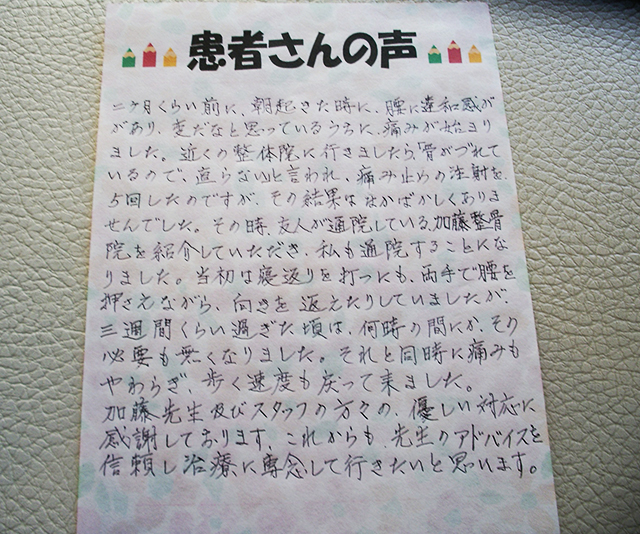 患者さんの声
二ケ月くらい前に、朝起きた時に、腰に違和感が
があり、変だなと思っているうちに、痛みが始まり
ました。近くの整体院に行きましたら「骨がづれて
いるので、直らない」と言われ、痛み止めの注射を
5回したのですが、その結果はなかばかしくありま
せんでした。その時、友人が通院している、加藤整骨
院を紹介していただき、私も通院することにな
りました。当初は寝返りを打つにも、両手で腰を
押さえながら、向きを返えたりしていましたが、
三週間くらい過ぎた頃は、何時の間にか、その
必要も無くなりました。それと同時に痛みも
やわらぎ、歩く速度も戻って来ました。
加藤先生及びスタッフの方々の、優しい対応に
感謝しております。これからも、先生のアドバイスを
信頼し治療に専念して行きたいと思います。